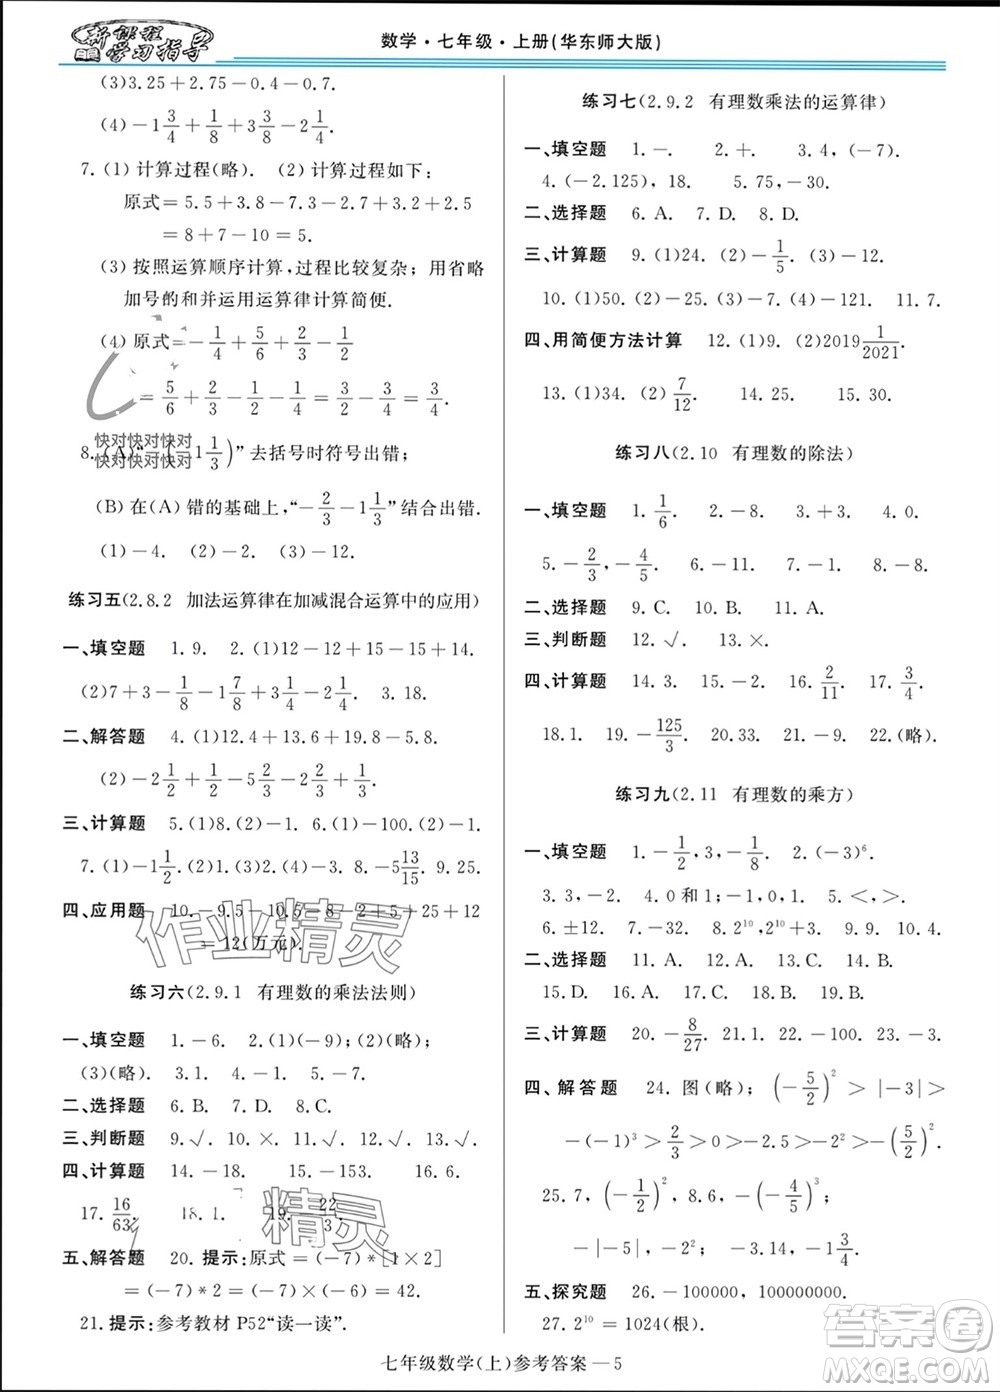 新课程
学习指导
数学·七年级·上册(华东师大版)
(3)3.25+2.75-0.4-0.7.
(4)-1 3/4+1/8+3 3/8-2 1/4.
7. (1)计算过程(略). (2)计算过程如下:
原式=5.5+3.8-7.3-2.7+3.2+2.5
=8+7-10=5.
(3)按照运算顺序计算,过程比较复杂;用省略
加号的和并运用运算律计算简便.
(4)原式=-1/4+5/6+2/3-1/2
=5/6+2/3-1/2-1/4=3/4=3/4.
8. (A)“-(-1 1/3)”去括号时符号出错;
快对快对快对
快对快对快对
(B)在(A)错的基础上,“-2/3-1 1/3”结合出错.
(1)-4. (2)-2. (3)-12.
练习五(2.8.2 加法运算律在加减混合运算中的应用)
一、填空题 1. 9. 2. (1)12-12+15-15+14.
(2)7+3-1/8-1 7/8+3 1/4-1/4. 3. 18.
二、解答题 4. (1)12.4+13.6+19.8-5.8.
(2)-2 1/2+1/2-5 2/3+1 2/3.
三、计算题 5.(1)8.(2)-1. 6.(1)-100.(2)-4.
7.(1)-1 1/2.(2)1.(3)2.(4)-11. 8.-5 13/15. 9.25.
四、应用题 10.-9.5-10.5-8-2+5+25+12
=12(万元).
作业精灵
练习六(2.9.1 有理数的乘法法则)
一、填空题 1. -6. 2. (1)(-9);(2)(略);
(3)(略). 3.1. 4.-1. 5.-1.
二、选择题 6. B. 7. D. 8. C.
三、判断题 9.√. 10.×. 11.√. 12.√. 13.√.
四、计算题 14. -18. 15. -153. 16. 6.
17. 16/63. 18. 1. 19. 22/3.
精灵
五、解答题 20. 提示:原式=(-7)*[1×2]
=(-7)*2=(-7)×(-6)=42.
21. 提示:参考教材 P52“读一读”.
练习七(2.9.2 有理数乘法的运算律)
一、填空题 1. -. 2. +. 3. 4,(-7).
4.(-2.125),18. 5. 75,-30.
二、选择题 6. A. 7. D. 8. D.
三、计算题 9. (1)24. (2)-1/5. (3)-12.
10. (1)50. (2)-25. (3)-7. (4)-121. 11. 7.
四、用简便方法计算 12. (1)9. (2)2019 1/2021.
13. (1)41. (2)7/12. 14. 25. 15. 10.
练习八(2.10 有理数的除法)
一、填空题 1. 1/6. 2. -8. 3. +3. 4. 0.
5. -2/3,-4/5. 6. 0. 7. 12. 8. -1.
二、选择题 9. C. 10. A. 11. C.
三、判断题 12. √. 13. ×.
四、计算题 14. 3. 15. -1. 16. 2/11. 17. 3/4.
18.1. 19.-125/3. 20.-5. 21.-9. 22.(略).
练习九(2.11 有理数的乘方)
一、填空题 1. -1/2,3,-1/8. 2. (-3)⁶.
3. 3,-2. 4. 0 和 1;-1,0,1. 5. <,>.
6. ±12. 7. -32. 8. 2¹⁰,2¹⁰. 9. 9. 10. 4.
二、选择题 11. A. 12. C. 13. C. 14. D.
15. D. 16. A. 17. D. 18. C. 19. B.
三、计算题 20. -8/27. 21.1. 22.-100. 23.-3.
四、解答题 24. 图(略);(-5/2)²>|-3|>
-(-1)³>2/3>0>-2.5>-2²>-(5/2)².
25. 7,(-1/2)²,8.6,-(-4/5)³;
-|-5|,-2.2² -3.14,-1 3/4.
五、探究题 26. -100000,100000000.
27. 2¹⁰=1024(根).
七年级数学(上)参考答案—5
答案圈
MXQE.COM